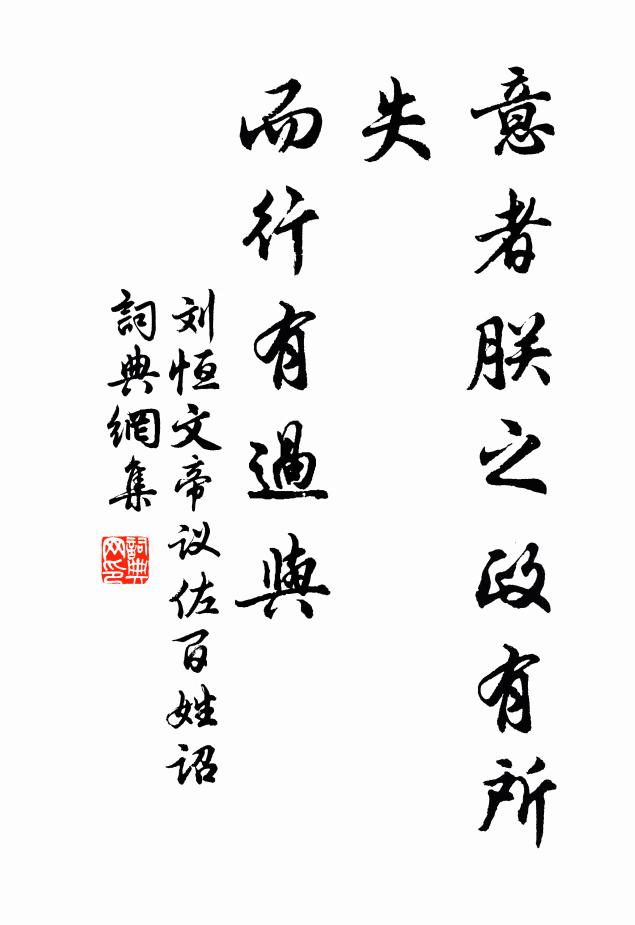 意者朕之政有所
失
而行有過與
刘恒文帝议佐百姓诏
詞典網集
詞典
网印